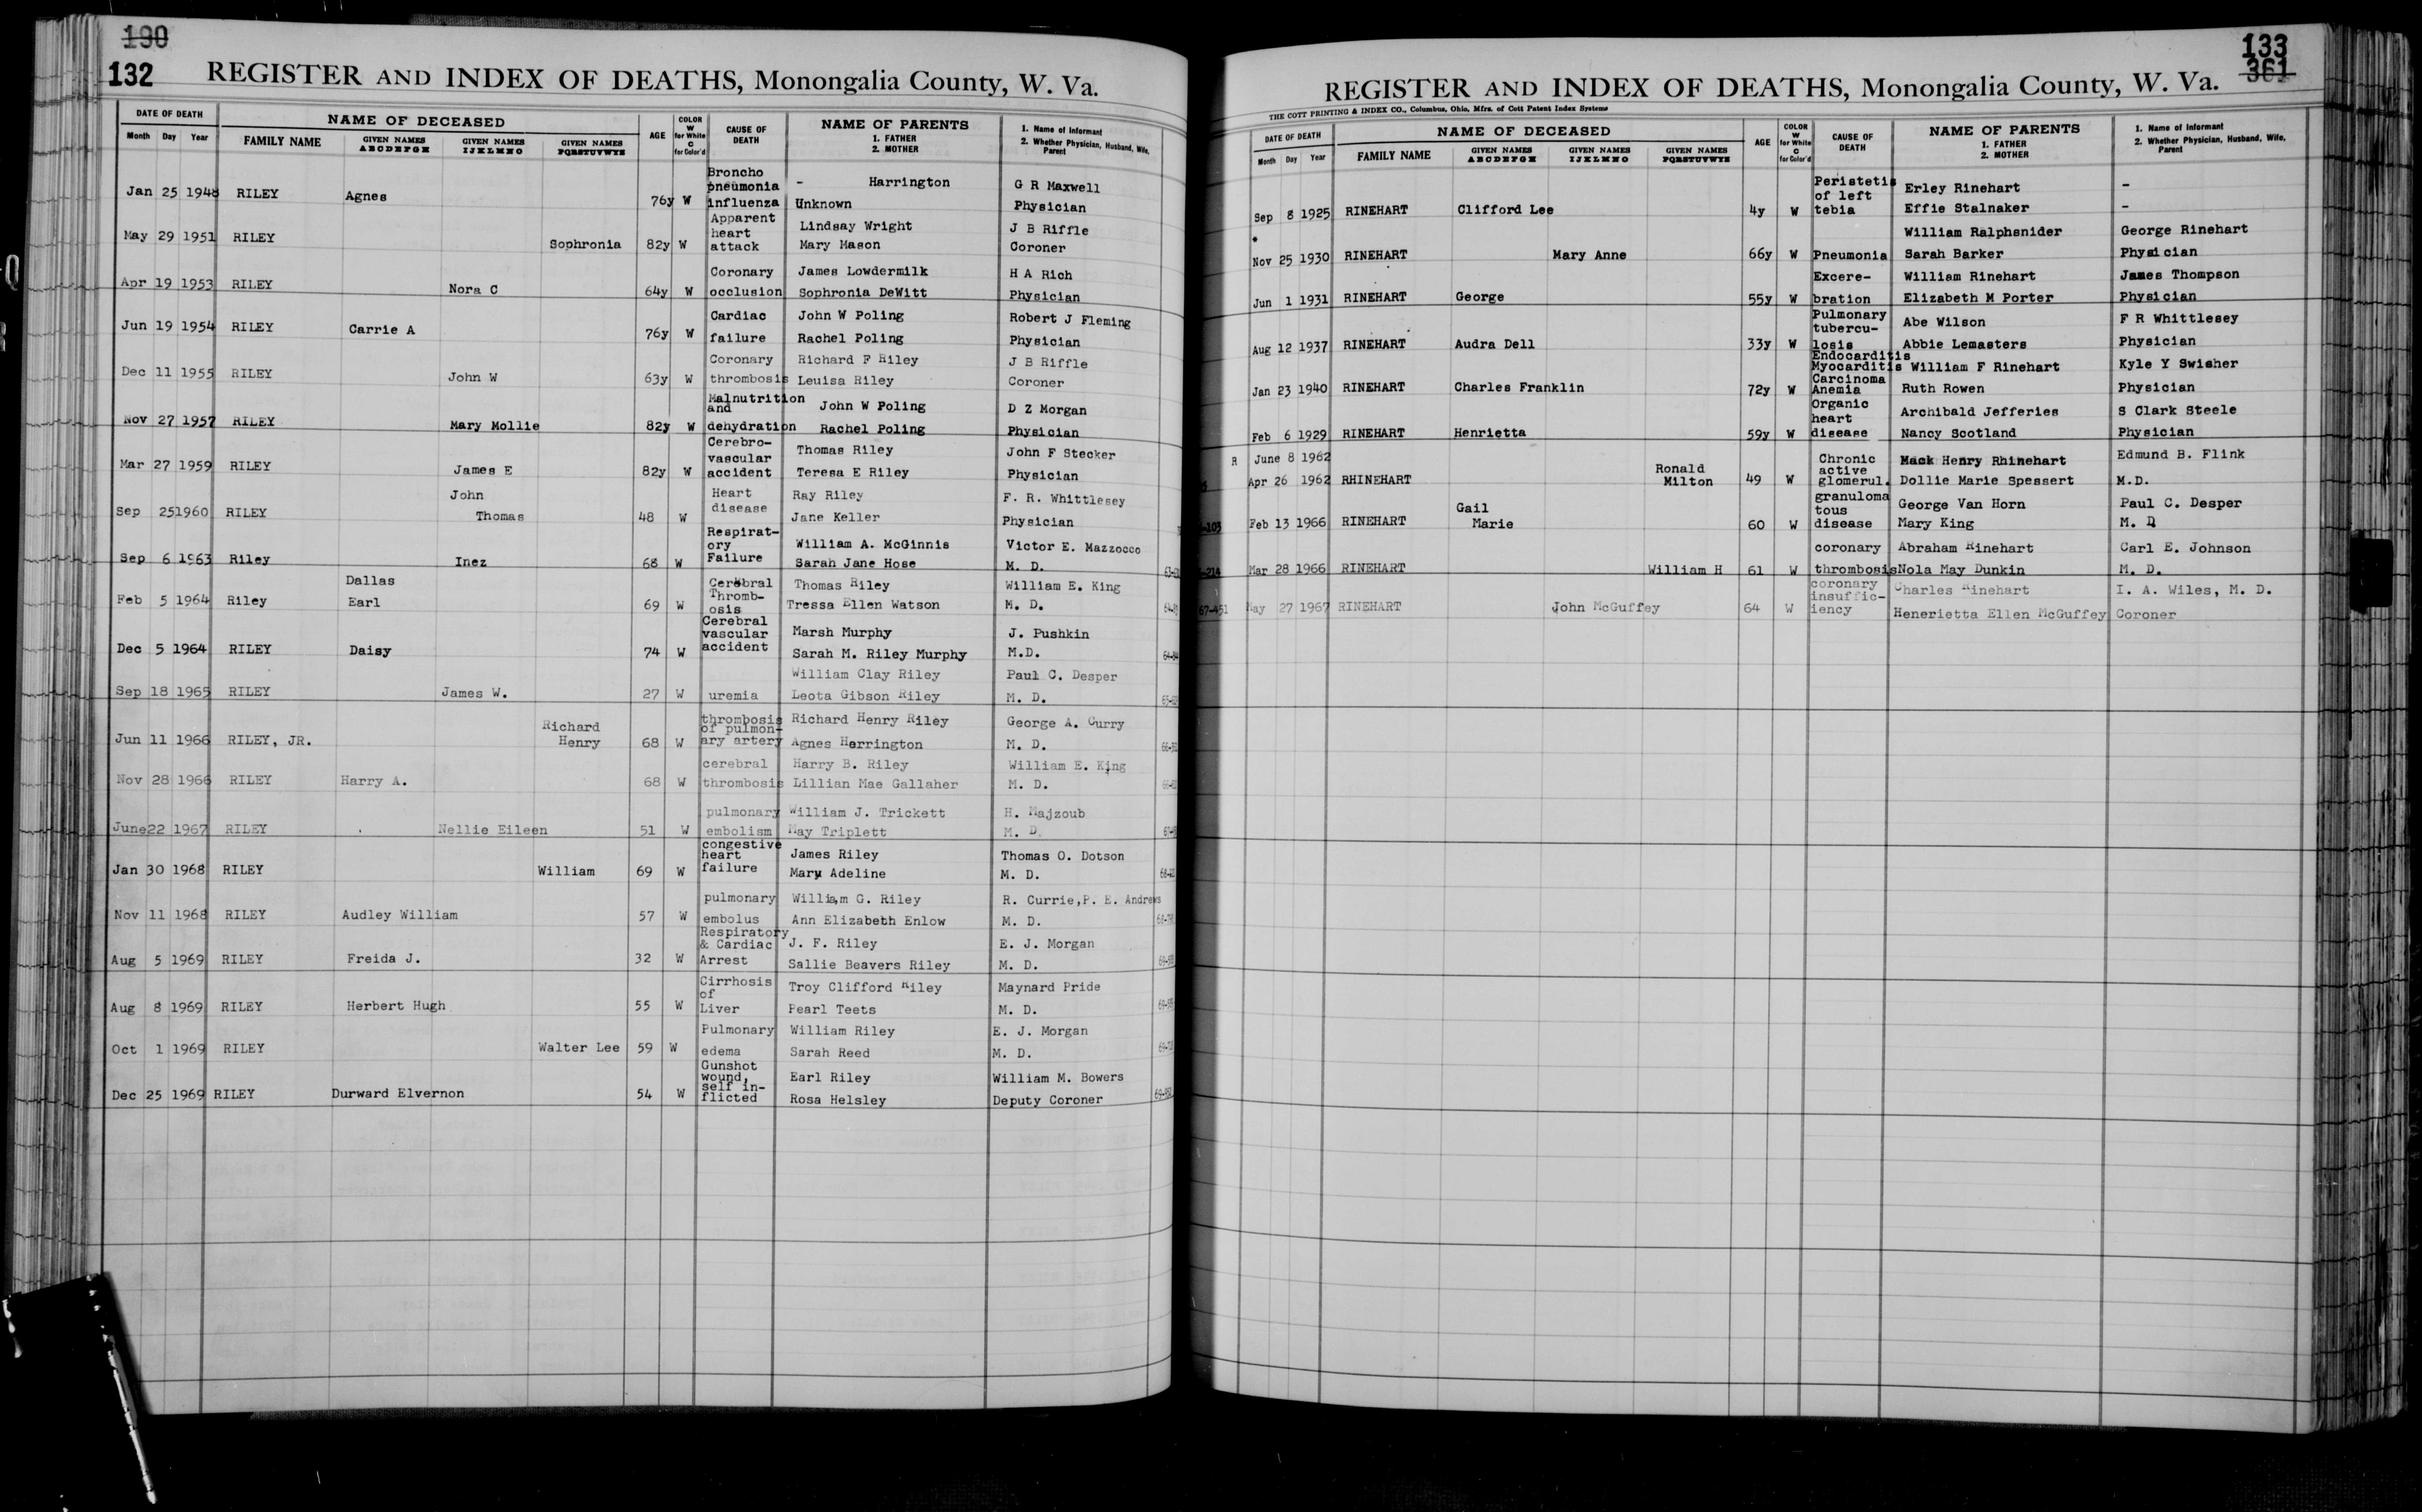 190
132 REGISTER AND INDEX OF DEATHS, Monongalia County, W. Va.
DATE OF DEATH NAME OF DECEASED AGE COLOR W for White C for Color'd CAUSE OF DEATH NAME OF PARENTS 1. FATHER 2. MOTHER 1. Name of Informant 2. Whether Physician, Husband, Wife, Parent
Month Day Year FAMILY NAME GIVEN NAMES ABCDEFGH GIVEN NAMES IJKLMNO GIVEN NAMES PQRSTUVWYZ
Broncho
pneumonia - Harrington G R Maxwell
Jan 25 1948 RILEY Agnes 76y W influenza Unknown Physician
Apparent
heart Lindsay Wright J B Riffle
May 29 1951 RILEY Sophronia 82y W attack Mary Mason Coroner
Coronary James Lowdermilk H A Rich
Apr 19 1953 RILEY Nora C 64y W occlusion Sophronia DeWitt Physician
Cardiac John W Poling Robert J Fleming
Jun 19 1954 RILEY Carrie A 76y W failure Rachel Poling Physician
Coronary Richard F Riley J B Riffle
Dec 11 1955 RILEY John W 63y W thrombosis Leuisa Riley Coroner
Malnutrition
and John W Poling D Z Morgan
Nov 27 1957 RILEY Mary Mollie 82y W dehydration Rachel Poling Physician
Cerebro-
vascular Thomas Riley John F Stecker
Mar 27 1959 RILEY James E 82y W accident Teresa E Riley Physician
John Heart
disease Ray Riley F. R. Whittlesey
Sep 25 1960 RILEY Thomas 48 W Jane Keller Physician
Respirat-
ory William A. McGinnis Victor E. Mazzocco
Sep 6 1963 Riley Inez 68 W Failure Sarah Jane Hose M. D.
Dallas Cerebral Thomas Riley William E. King
Thromb-
Feb 5 1964 Riley Earl 69 W osis Tressa Ellen Watson M. D.
Cerebral
vascular Marsh Murphy J. Pushkin
Dec 5 1964 RILEY Daisy 74 W accident Sarah M. Riley Murphy M.D.
William Clay Riley Paul C. Desper
Sep 18 1965 RILEY James W. 27 W uremia Leota Gibson Riley M. D.
thrombosis Richard Henry Riley George A. Curry
Richard of pulmon-
Jun 11 1966 RILEY, JR. Henry 68 W ary artery Agnes Herrington M. D.
cerebral Harry B. Riley William E. King
Nov 28 1966 RILEY Harry A. 68 W thrombosis Lillian Mae Gallaher M. D.
pulmonary William J. Trickett H. Majzoub
June 22 1967 RILEY Nellie Eileen 51 W embolism May Triplett M. D.
congestive
heart James Riley Thomas O. Dotson
Jan 30 1968 RILEY William 69 W failure Mary Adeline M. D.
pulmonary William G. Riley R. Currie, P. E. Andrews
Nov 11 1968 RILEY Audley William 57 W embolus Ann Elizabeth Enlow M. D.
Respiratory
& Cardiac J. F. Riley E. J. Morgan
Aug 5 1969 RILEY Freida J. 32 W Arrest Sallie Beavers Riley M. D.
Cirrhosis
of Troy Clifford Riley Maynard Pride
Aug 8 1969 RILEY Herbert Hugh 55 W Liver Pearl Teets M. D.
Pulmonary William Riley E. J. Morgan
Oct 1 1969 RILEY Walter Lee 59 W edema Sarah Reed M. D.
Gunshot
wound, Earl Riley William M. Bowers
self in-
Dec 25 1969 RILEY Durward Elvernon 54 W flicted Rosa Helsley Deputy Coroner
133
361
REGISTER AND INDEX OF DEATHS, Monongalia County, W. Va.
THE COTT PRINTING & INDEX CO., Columbus, Ohio, Mfrs. of Cott Patent Index Systems
DATE OF DEATH NAME OF DECEASED AGE COLOR W for White C for Color'd CAUSE OF DEATH NAME OF PARENTS 1. FATHER 2. MOTHER 1. Name of Informant 2. Whether Physician, Husband, Wife, Parent
Month Day Year FAMILY NAME GIVEN NAMES ABCDEFGH GIVEN NAMES IJKLMNO GIVEN NAMES PQRSTUVWYZ
Peristetis
of left Erley Rinehart -
Sep 8 1925 RINEHART Clifford Lee 4y W tebia Effie Stalnaker -
William Ralphsnider George Rinehart
Nov 25 1930 RINEHART Mary Anne 66y W Pneumonia Sarah Barker Physician
Excere- William Rinehart James Thompson
Jun 1 1931 RINEHART George 55y W bration Elizabeth M Porter Physician
Pulmonary
tubercu- Abe Wilson F R Whittlesey
Aug 12 1937 RINEHART Audra Dell 33y W losis Abbie Lemasters Physician
Endocarditis
Myocarditis William F Rinehart Kyle Y Swisher
Carcinoma
Jan 23 1940 RINEHART Charles Franklin 72y W Anemia Ruth Rowen Physician
Organic
heart Archibald Jefferies S Clark Steele
Feb 6 1929 RINEHART Henrietta 59y W disease Nancy Scotland Physician
R June 8 1962 Chronic Mack Henry Rhinehart Edmund B. Flink
Ronald active
Apr 26 1962 RHINEHART Milton 49 W glomerul. Dollie Marie Spessert M.D.
granuloma
Gail tous George Van Horn Paul C. Desper
Feb 13 1966 RINEHART Marie 60 W disease Mary King M. D
coronary Abraham Rinehart Carl E. Johnson
Mar 28 1966 RINEHART William H 61 W thrombosis Nola May Dunkin M. D.
coronary
insuffic- Charles Rinehart I. A. Wiles, M. D.
67-451 May 27 1967 RINEHART John McGuffey 64 W iency Henerietta Ellen McGuffey Coroner